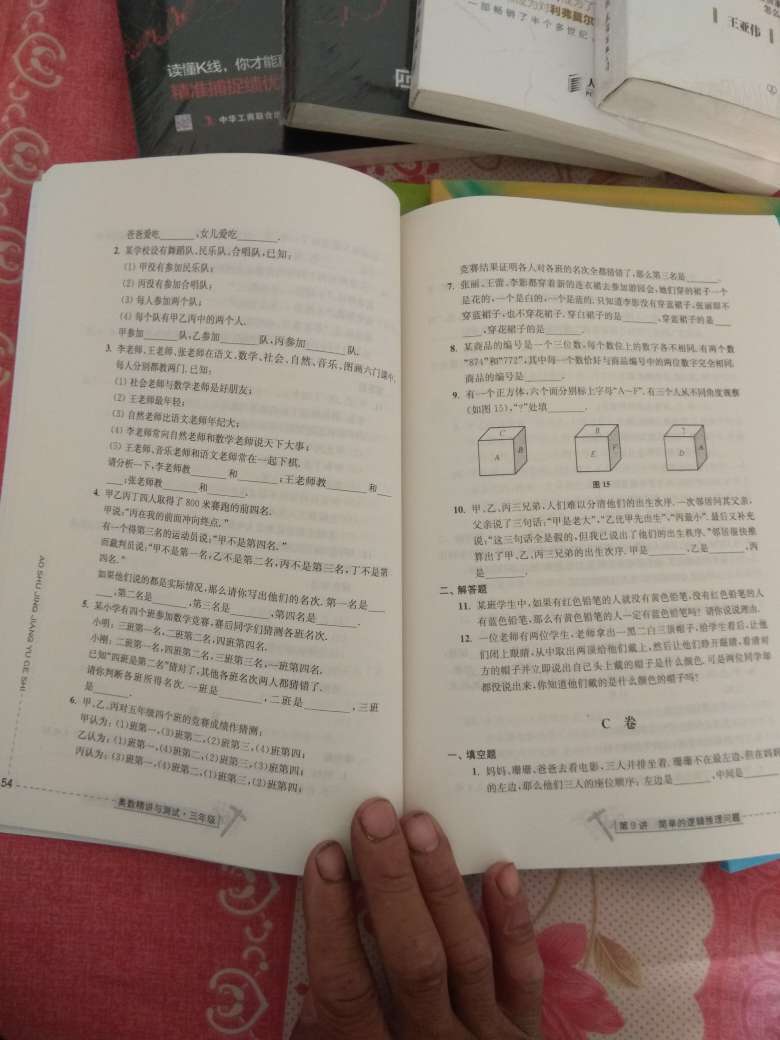 读懂K线，你才能
精准捕捉绩优
中华工商联合出
一部畅销了半个多世纪
王亚伟
爸爸爱吃________,女儿爱吃________.
2. 某学校设有舞蹈队、民乐队、合唱队,已知:
(1) 甲没有参加民乐队;
(2) 丙没有参加合唱队;
(3) 每人参加两个队;
(4) 每个队有甲乙丙中的两个人.
甲参加________队,乙参加________队,丙参加________队.
3. 李老师、王老师、张老师在语文、数学、社会、自然、音乐、图画六门课中,
每人分别都教两门.已知:
(1) 社会老师与数学老师是好朋友;
(2) 王老师最年轻;
(3) 自然老师比语文老师年纪大;
(4) 李老师常向自然老师和数学老师说天下大事;
(5) 王老师、音乐老师和语文老师常在一起下棋.
请分析一下,李老师教________和________;王老师教________和__
__;张老师教________和________.
4. 甲乙丙丁四人取得了800米赛跑的前四名.
甲说:“丙在我的前面冲向终点.”
有一个得第三名的运动员说:“甲不是第四名.”
而裁判员说:“甲不是第一名,乙不是第二名,丙不是第三名,丁不是第
四名.”
如果他们说的都是实际情况,那么请你写出他们的名次.第一名是__
__,第二名是________,第三名是________,第四名是________.
5. 某小学有四个班参加数学竞赛,赛后同学们猜测各班名次.
小明:三班第一名,二班第二名,四班第四名.
小刚:二班第一名,四班第二名,三班第三名,一班第四名.
已知“四班是第二名”猜对了,其他各班名次两人都猜错了.
请你判断各班所得名次.一班是________,二班是________,三班
是________.
6. 甲、乙、丙对五年级四个班的竞赛成绩作猜测:
甲认为:(1)班第一,(3)班第二,(2)班第三,(4)班第四;
乙认为:(1)班第一,(4)班第二,(2)班第三,(3)班第四;
丙认为:(3)班第一,(4)班第二,(1)班第三,(2)班第四;
AO SHU JING JIANG YU CE SHI
54
奥数精讲与测试·三年级
竞赛结果证明各人对各班的名次全都猜错了,那么第三名是________.
7. 张丽、王蕾、李影都穿着新的连衣裙去参加游园会,她们穿的裙子一个
是花的,一个是白的,一个是蓝的.只知道李影没有穿蓝裙子,张丽既不
穿蓝裙子,也不穿花裙子.穿白裙子的是________,穿蓝裙子的是__
__,穿花裙子的是________.
8. 某商品的编号是一个三位数,每个数位上的数字各不相同.有两个数
“874”和“772”,其中每一个数恰好与商品编号中的两位数字完全相同,
商品的编号是________.
9. 有一个正方体,六个面分别标上字母“A~F”.有三个人从不同角度观察
(如图15),“?”处填________.
C A B
B E F
? D A
图 15
10. 甲、乙、丙三兄弟,人们难以分清他们的出生次序.一次邻居问其父亲,
父亲说了三句话:“甲是老大”,“乙比甲先出生”,“丙最小”.最后又补充
说:“这三句话全是假的,但我已说出了他们的出生秩序.”邻居很快推
算出了甲、乙、丙三兄弟的出生次序.甲是________,乙是________,丙
是________.
二、解答题
11. 某班学生中,如果有红色铅笔的人就没有黄色铅笔,没有红色铅笔的人
有蓝色铅笔,那么有黄色铅笔的人一定有蓝色铅笔吗?请你说说理由.
12. 一位老师有两位学生,老师拿出一黑二白三顶帽子,给学生看后,让他
们闭上眼睛,从中取出两顶给他们戴上,然后让他们睁开眼睛,看清对
方的帽子并立即说出自己头上戴的帽子是什么颜色.可是两位同学都
都没说出来,你知道他们戴的是什么颜色的帽子吗?
C 卷
一、填空题
1. 妈妈、珊珊、爸爸去看电影,三人并排坐着.珊珊不在最左边,但在妈妈
的左边,那么他们三人的座位顺序,左边是________,中间是____
第9讲 简单的逻辑推理问题